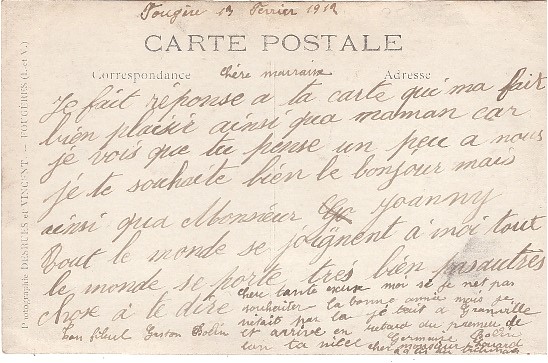 Fougère 13 Fevrier 1912
CARTE POSTALE
Correspondance
Adresse
chère marraine
Je fait réponse a ta carte qui ma fait
bien plaisir ainsi qua maman car
je vois que tu pense un peu a nous
je te souhaite bien le bonjour mais
ainsi qua Monsieur Joanny
tout le monde se joignent à moi tout
le monde se porte très bien pas autres
chose à te dire
chère tante excuse moi si je net pas
souhaiter la bonne année mais je
netait pas la je tait a Granville
se arrive en retard du premier de
ton filleul Gaston Bobin
ton ta niece Germaine Bobin
chez monsieur
Photographie DESRUES et VINCENT — FOUGÈRES (I.-et-V.)